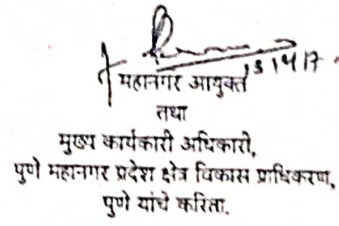 महानगर आयुक्त
तथा
मुख्य कार्यकारी अधिकारी,
पुणे महानगर प्रदेश क्षेत्र विकास प्राधिकरण,
पुणे यांचे करिता.